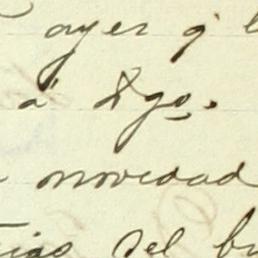 ayer q'
a' Dgo.
novedad
del